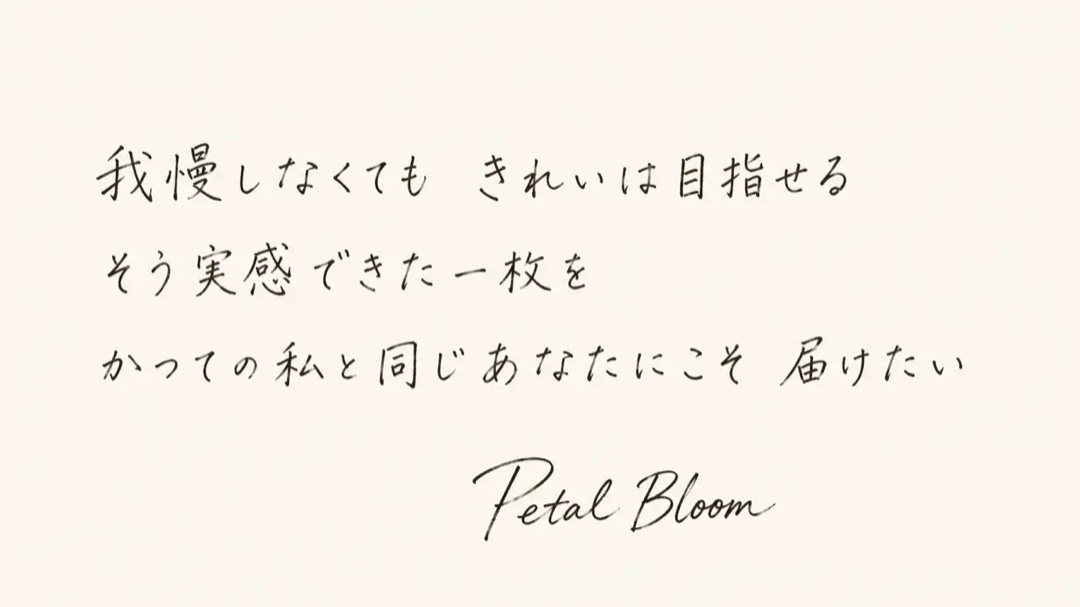 我慢しなくても きれいは目指せる
そう実感できた一枚を
かつての私と同じあなたにこそ 届けたい
Petal Bloom